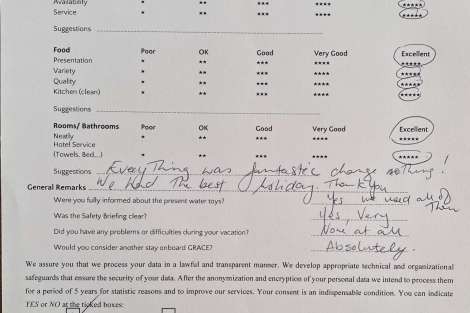 Availability * ** *** **** *****
Service * ** *** **** *****
Suggestions
Food Poor OK Good Very Good Excellent
Presentation * ** *** **** *****
Variety * ** *** **** *****
Quality * ** *** **** *****
Kitchen (clean) * ** *** **** *****
Suggestions
Rooms/ Bathrooms Poor OK Good Very Good Excellent
Neatly * ** *** **** *****
Hotel Service
(Towels, Bed...) * ** *** **** *****
Suggestions Every Thing was fantastic change nothing!
General Remarks We had The best holiday. Thank you
Were you fully informed about the present water toys? Yes we used all of Them
Was the Safety Briefing clear? Yes, Very
Did you have any problems or difficulties during your vacation? None at all
Would you consider another stay onboard GRACE? Absolutely.
We assure you that we process your data in a lawful and transparent manner. We develop appropriate technical and organizational
safeguards that ensure the security of your data. After the anonymization and encryption of your personal data we intend to process them
for a period of 5 years for statistic reasons and to improve our services. Your consent is an indispensable condition. You can indicate
YES or NO at the ticked boxes: